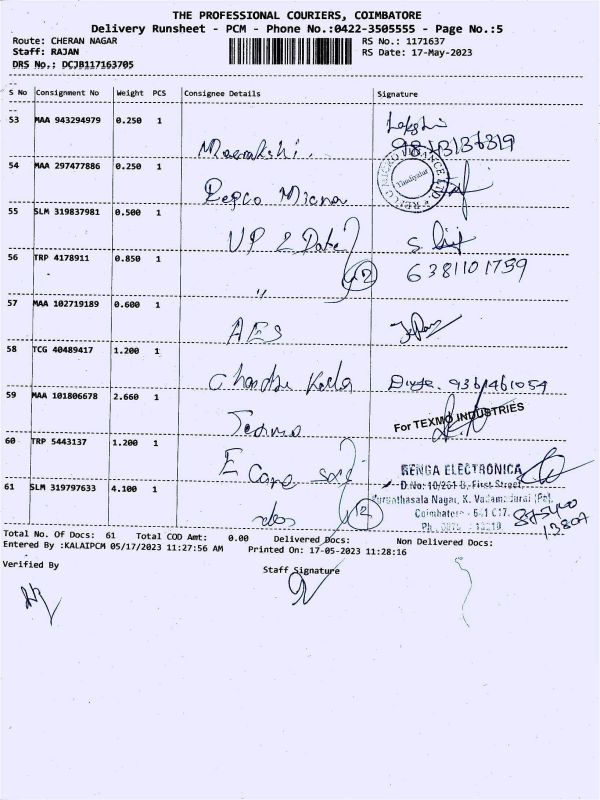 THE PROFESSIONAL COURIERS, COIMBATORE
Delivery Runsheet - PCM - Phone No.:0422-3505555 - Page No.:5
Route: CHERAN NAGAR RS No.: 1171637
Staff: RAJAN RS Date: 17-May-2023
DRS No.: DCJB117163705
S No Consignment No Weight PCS Consignee Details Signature
53 MAA 943294979 0.250 1
Meenakshi.
54 MAA 297477886 0.250 1
Repco Micro
55 SLM 319837981 0.500 1
UP 2 Date
56 TRP 4178911 0.850 1 6381101759
" 2
57 MAA 102719189 0.600 1
AES
58 TCG 40489417 1.200 1
59 MAA 101806678 2.660 1
For TEXMO INDUSTRIES
60 TRP 5443137 1.200 1
E Care
RENGA ELECTRONICA
61 SLM 319797633 4.100 1
D.No: 10/261-B, First Street,
Coimbatore - 641 017.
12
Total No. Of Docs: 61 Total COD Amt: 0.00 Delivered Docs: Non Delivered Docs:
Entered By :KALAIPCM 05/17/2023 11:27:56 AM Printed On: 17-05-2023 11:28:16
Verified By Staff Signature